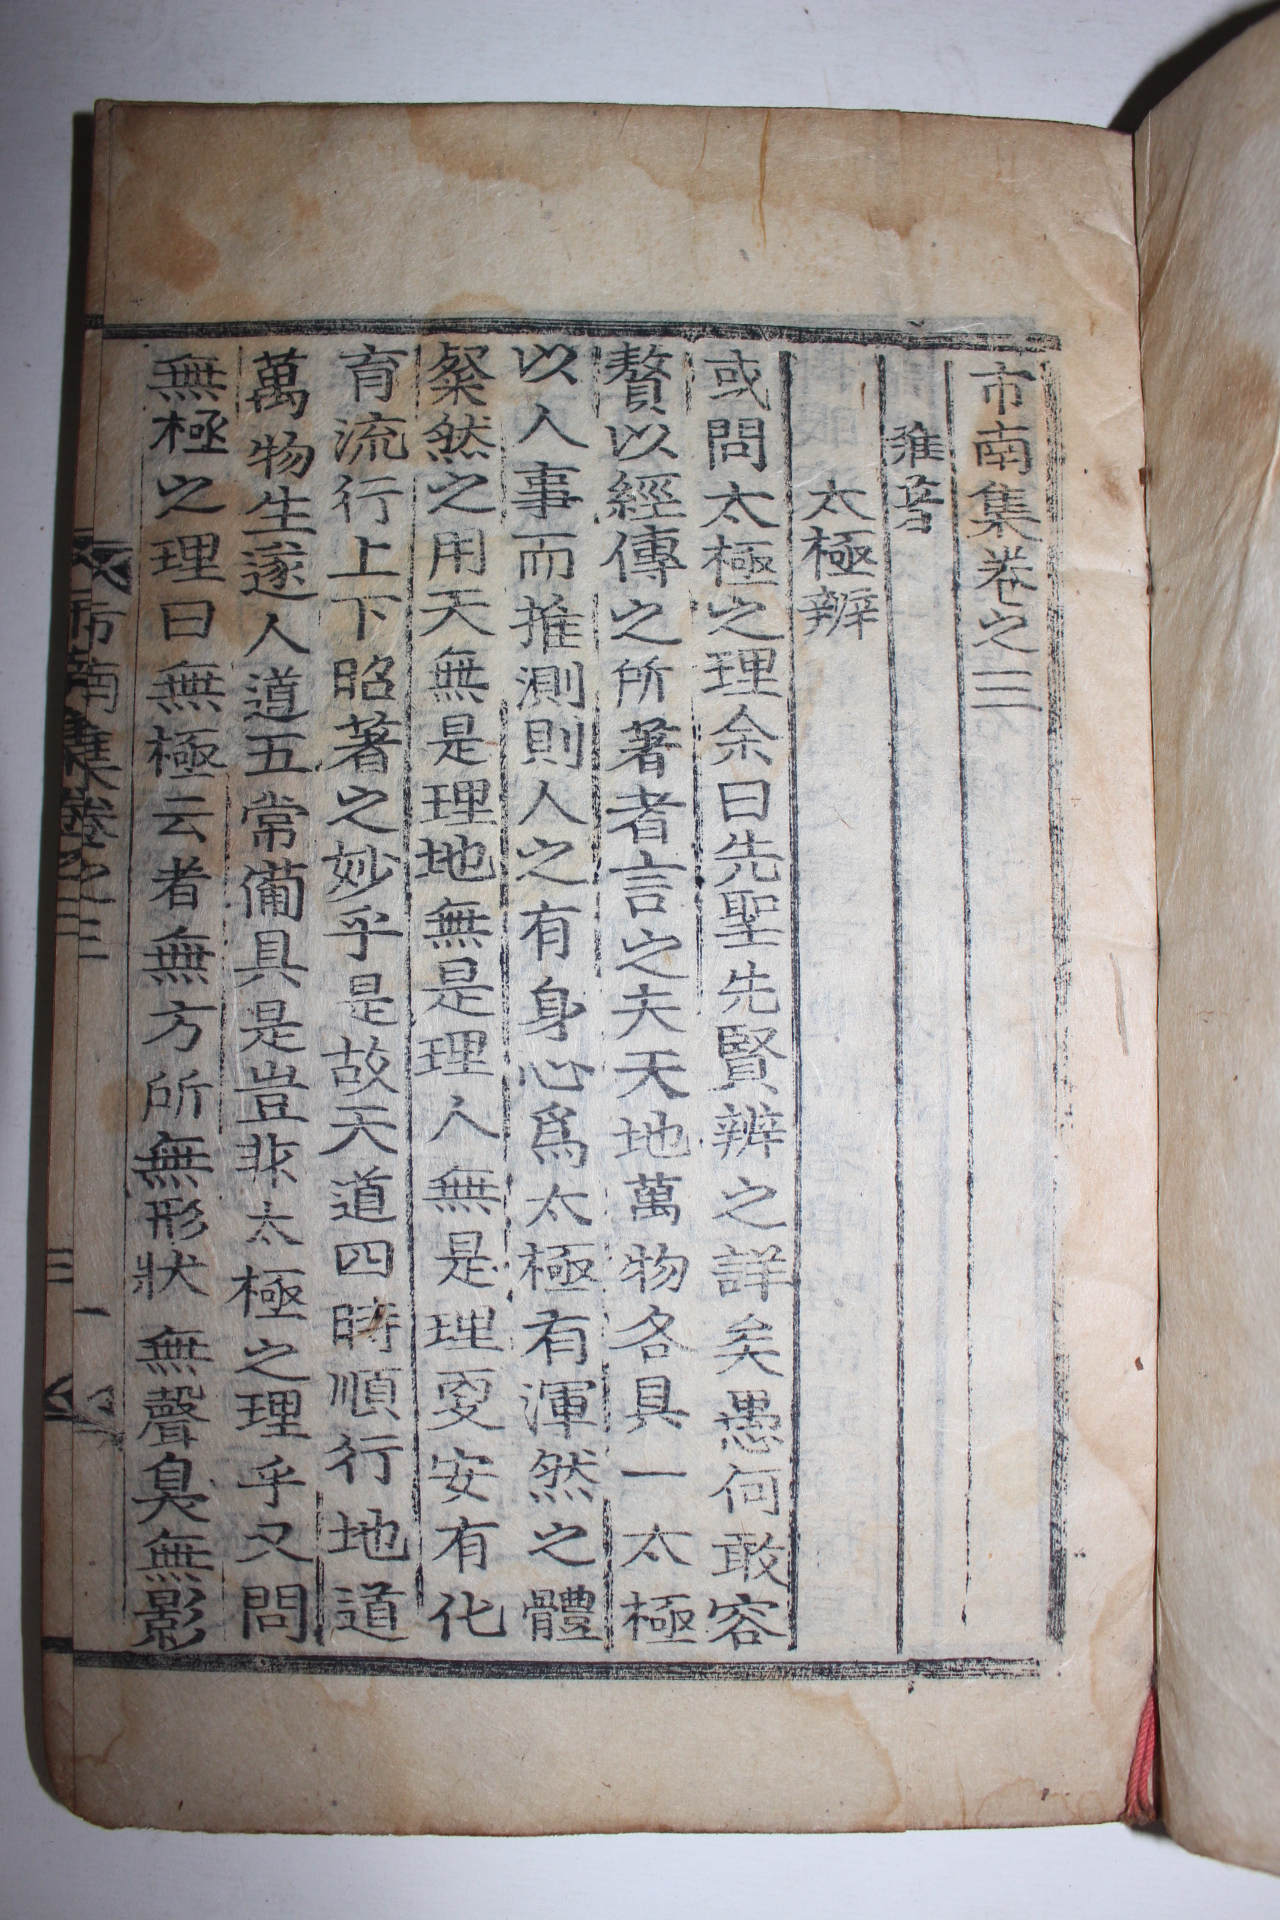 市南集卷之三
雜著
太極辨
或問太極之理余曰先聖先賢辨之詳矣愚何敢容
贅以經傳之所著者言之夫天地萬物各具一太極
以人事而推測則人之有身心爲太極有渾然之體
粲然之用天無是理地無是理人無是理更安有化
育流行上下昭著之妙乎是故天道四時順行地道
萬物生遂人道五常備具是豈非太極之理乎又問
無極之理曰無極云者無方所無形狀無聲臭無影
市南集卷之三
一